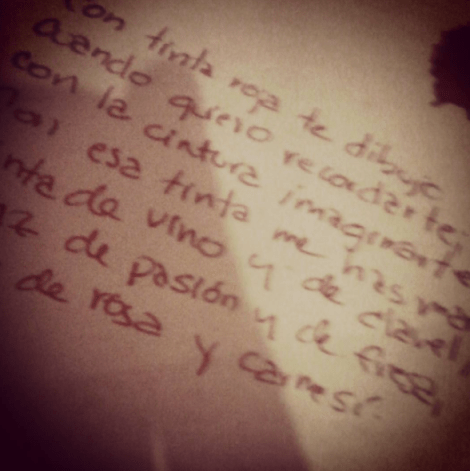 con tinta roja te dibujo
cuando quiero recordarte,
con la cintura imaginante
esa tinta me has
de vino y de clavel,
de pasión y de fresa,
de rosa y carmesí.